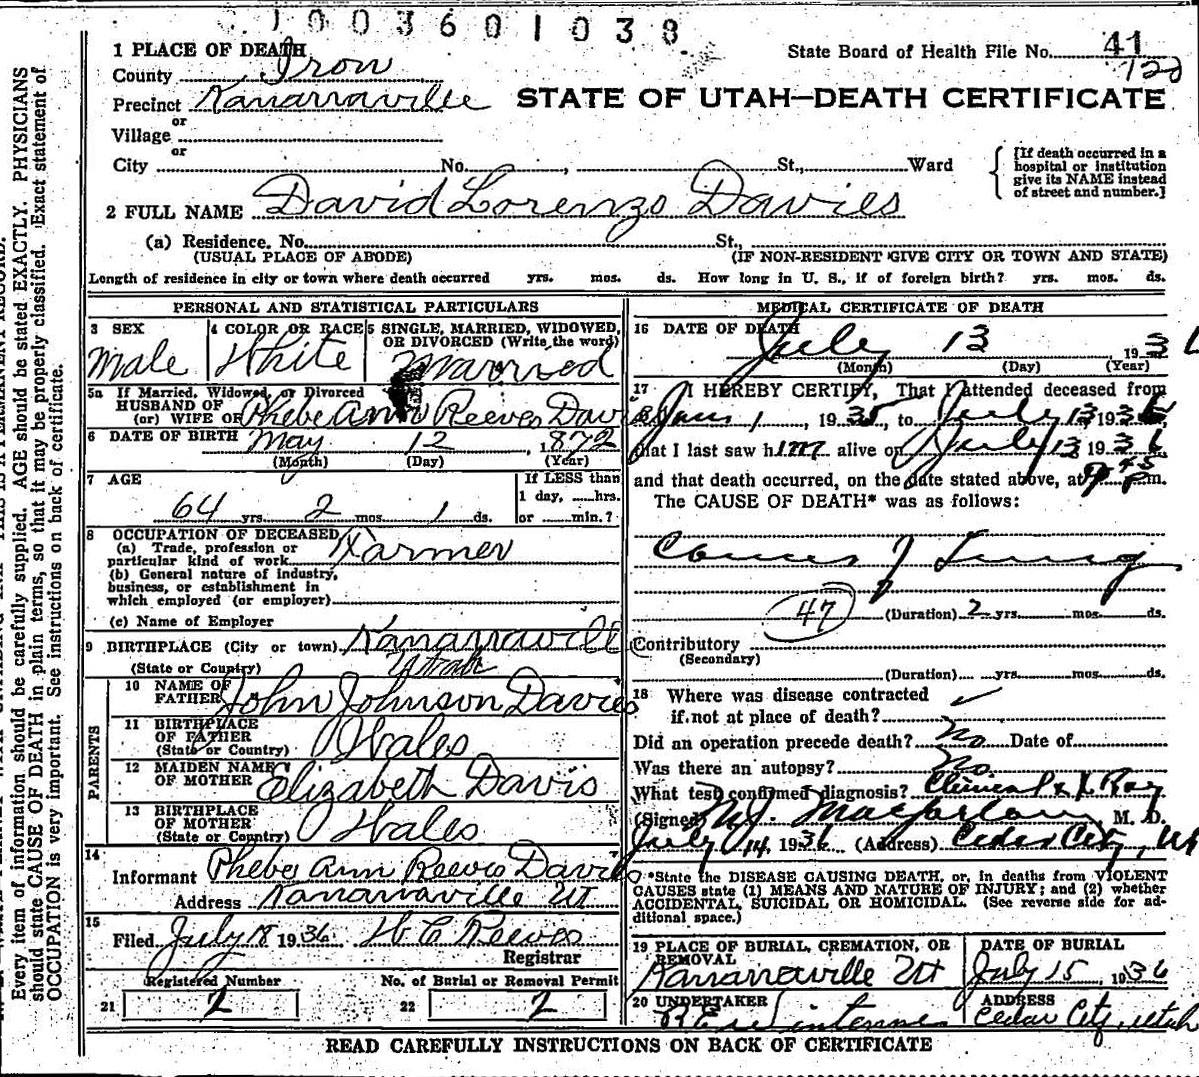 1003601038
1 PLACE OF DEATH
State Board of Health File No. 41
County Iron
122
Precinct Kanarraville
STATE OF UTAH—DEATH CERTIFICATE
or
Village
or
City No. , St., Ward
[If death occurred in a
hospital or institution
give its NAME instead
of street and number.]
2 FULL NAME David Lorenzo Davies
(a) Residence. No. St.,
(USUAL PLACE OF ABODE) (IF NON-RESIDENT GIVE CITY OR TOWN AND STATE)
Length of residence in city or town where death occurred yrs. mos. ds. How long in U. S., if of foreign birth? yrs. mos. ds.
PERSONAL AND STATISTICAL PARTICULARS
3 SEX
Male
4 COLOR OR RACE
White
5 SINGLE, MARRIED, WIDOWED,
OR DIVORCED (Write the word)
Married
5a If Married, Widowed, or Divorced
HUSBAND OF
(or) WIFE OF Phebe Ann Reeves Davies
6 DATE OF BIRTH May 12, 1872
(Month) (Day) (Year)
7 AGE
64 yrs 2 mos 1 ds.
If LESS than
1 day, hrs.
or min.?
8 OCCUPATION OF DECEASED
(a) Trade, profession or
particular kind of work Farmer
(b) General nature of industry,
business, or establishment in
which employed (or employer)
(c) Name of Employer
9 BIRTHPLACE (City or town) Kanarraville
(State or Country) Utah
PARENTS
10 NAME OF
FATHER John Johnson Davies
11 BIRTHPLACE
OF FATHER
(State or Country) Wales
12 MAIDEN NAME
OF MOTHER Elizabeth Davis
13 BIRTHPLACE
OF MOTHER
(State or Country) Wales
14
Informant Phebe Ann Reeves Davies
Address Kanarraville Ut
15
Filed July 18 1936 W C Reeves
Registrar
Registered Number
21 2
No. of Burial or Removal Permit
22 2
MEDICAL CERTIFICATE OF DEATH
16 DATE OF DEATH
July 13 193
(Month) (Day) (Year)
17 I HEREBY CERTIFY, That I attended deceased from
Jan 1, 1935, to July 13 1936,
that I last saw him alive on July 13 1936
and that death occurred, on the date stated above, at m.
The CAUSE OF DEATH* was as follows:
Cancer of Lung
47 (Duration) 2 yrs. mos. ds.
Contributory
(Secondary)
(Duration) yrs. mos. ds.
18 Where was disease contracted
if not at place of death?
Did an operation precede death? No Date of
Was there an autopsy? No.
What test confirmed diagnosis? Clinical & X Ray
(Signed) M. J. Macfarlane, M. D.
July 14, 1936 (Address) Cedar City, Ut
*State the DISEASE CAUSING DEATH, or, in deaths from VIOLENT
CAUSES state (1) MEANS AND NATURE OF INJURY; and (2) whether
ACCIDENTAL, SUICIDAL OR HOMICIDAL. (See reverse side for ad-
ditional space.)
19 PLACE OF BURIAL, CREMATION, OR
REMOVAL
Kanarraville Ut
DATE OF BURIAL
July 15, 1936
20 UNDERTAKER
ADDRESS
Cedar City, Utah
READ CAREFULLY INSTRUCTIONS ON BACK OF CERTIFICATE
Every item of information should be carefully supplied. AGE should be stated EXACTLY. PHYSICIANS
should state CAUSE OF DEATH in plain terms, so that it may be properly classified. Exact statement of
OCCUPATION is very important. See instructions on back of certificate.